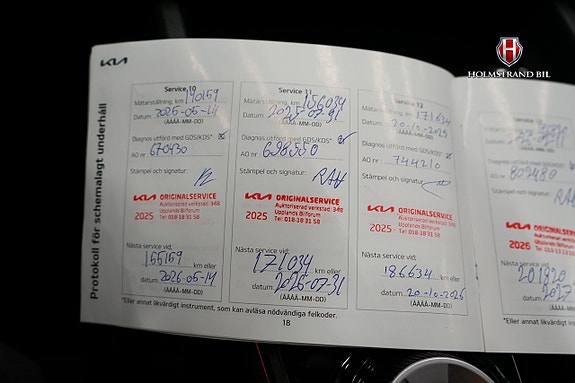 HOLMSTRAND BIL
KIA
Protokoll för schemalagt underhåll
Service 10
Mätarställning, km 140159
Datum 2025-05-14
(ÅÅÅÅ-MM-DD)
Diagnos utförd med GDS/KDS*
AO nr 670430
Stämpel och signatur:
KIA ORIGINALSERVICE
Auktoriserad verkstad: 348
Upplands Bilforum
2025 Tel: 018-18 31 58
Nästa service vid:
155159 km eller
datum 2026-05-14
(ÅÅÅÅ-MM-DD)
Service 11
Mätarställning, km 156034
Datum 2025-07-31
(ÅÅÅÅ-MM-DD)
Diagnos utförd med GDS/KDS*
AO nr 698550
Stämpel och signatur:
KIA ORIGINALSERVICE
Auktoriserad verkstad: 348
Upplands Bilforum
2025 Tel: 018-18 31 58
Nästa service vid:
171034 km eller
datum 2026-07-31
(ÅÅÅÅ-MM-DD)
Service 12
Mätarställning, km 171634
Datum 20-10-2025
(ÅÅÅÅ-MM-DD)
Diagnos utförd med GDS/KDS*
AO nr 744210
Stämpel och signatur:
KIA ORIGINALSERVICE
Auktoriserad verkstad: 348
Upplands Bilforum
2025 Tel: 018-18 31 58
Nästa service vid:
186634 km eller
datum 20-10-2026
(ÅÅÅÅ-MM-DD)
*Eller annat likvärdigt instrument, som kan avläsa nödvändiga felkoder.
18
Diagnos utförd med
AO nr 802489
Stämpel och signatur:
KIA ORIGINALS
Auktoriserad
Upplands Bilforum
2026 Tel: 018-18 31
Nästa service vid:
201820
datum 2027
(ÅÅÅÅ-MM-DD)
*Eller annat likvärdigt ins